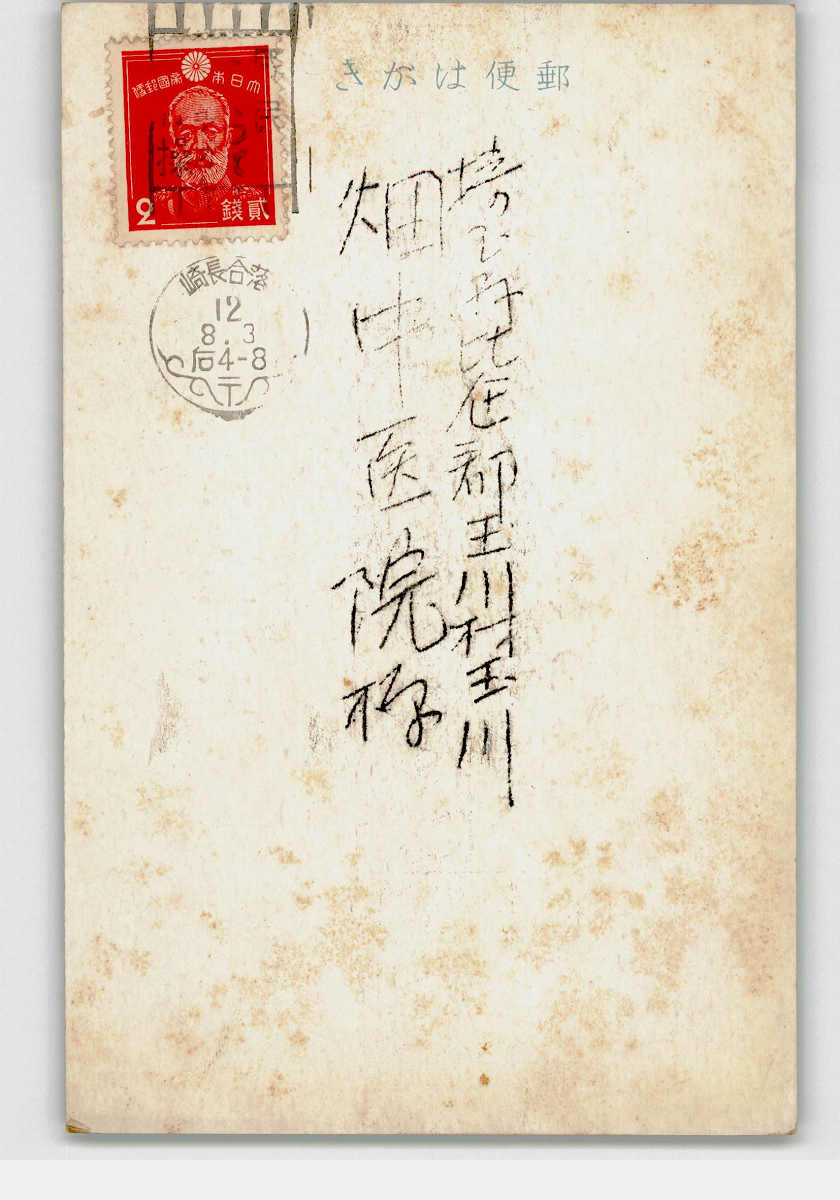 郵便はがき
大日本帝國郵便
貳錢
2
落合長崎
12
8.3
后4-8
〒
埼玉県比企郡玉川村玉川
畑中医院様